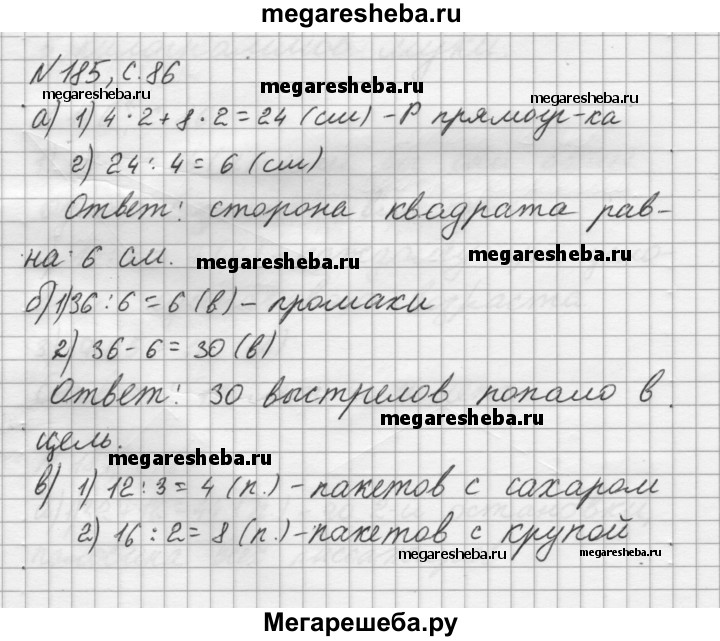 megaresheba.ru
N 185, с. 86
megaresheba.ru
megaresheba.ru
а) 1) 4 · 2 + 8 · 2 = 24 (см) - Р прямоуг-ка
2) 24 : 4 = 6 (см)
Ответ: сторона квадрата рав-
на 6 см.
megaresheba.ru
megaresheba.ru
б) 1) 36 : 6 = 6 (в) - промахи
2) 36 - 6 = 30 (в)
Ответ: 30 выстрелов попало в
megaresheba.ru
цель.
megaresheba.ru
в) 1) 12 : 3 = 4 (п.) - пакетов с сахаром
2) 16 : 2 = 8 (п.) - пакетов с крупой
megaresheba.ru
megaresheba.ru
Мегарешеба.ру